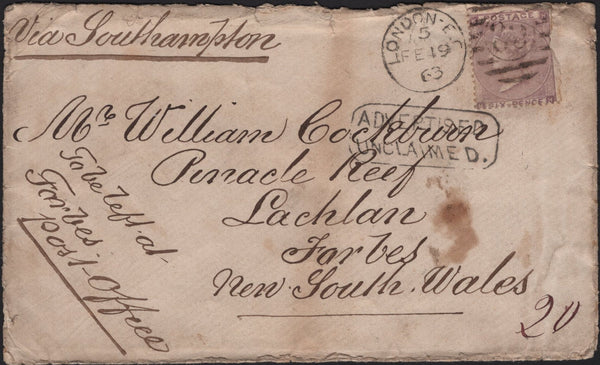 Via Southampton
LONDON-E.C
5
FE 19
63
POSTAGE
SIX-PENCE
ADVERTISED
UNCLAIMED.
Mr William Cockburn
Pinacle Reef
Lachlan
Forbes
New South Wales
To be left at
Forbes
post Office
20